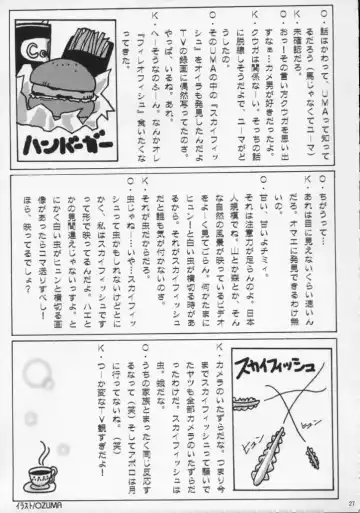 O．話はかわって、UMAって知って
るだろう（馬じゃなくてユーマ）
K．未確認だろ。
O．おっーその言い方クウガを思い出
すなぁ…カメ男が好きだったよ。
K．クウガは関係な～い。そっちの話
に脱線しそうだけど、ユーマがど
うしたの。
O．そのUMAの中の『スカイフィッ
シュ』をオイラも発見したんだよ
TVの録画に偶然写ってたのさ。
やっぱ、いるね。あれ。
K．へーそうなのふーん。なんかオレ
『フィレオフィシュ』食いたくな
ってきた。
ハンバーガー
O．ちがうって…
K．あれは目に見えないくらい速いん
だろ。オマエに発見できるわけ無
いの。
O．甘い。甘いよチミィ。
それは注意力が足らんのよ。日本
人規模でね。山とか森とか、そん
な自然の風景が映っているビデオ
をよーく見てごらん。何かたまに
ヒュン！と白い虫が横切る時があ
るから。それがスカイフィッシュ
だと誰も気が付かないのさ。
K．それが虫だからだろ。
O．虫じゃね……いや…スカイフィッ
シュって虫かもしれないけどとに
かく、私はスカイフィッシュです
って形で映ってるんだよ。ハエと
かの見間違えじゃないっすよ、と
にかく白い虫がビュンと横切る画
像があったらコマ送りすべし！
ほら、映ってるでしょ？
スカイフィッシュ
ビュン
ビュン
K．カメラのいたずらだな。つまり今
までスカイフィッシュって騒いで
たヤツも全部カメラのいたずらだ
ったわけだ。スカイフィッシュは
虫。蛾だな。
O．うちの家族とまったく同じ反応す
るなって（笑）そしてアポロは月
に行ってないね。（笑）
K．つーか変なTV観すぎだよ！
イラスト/OZUMA
27